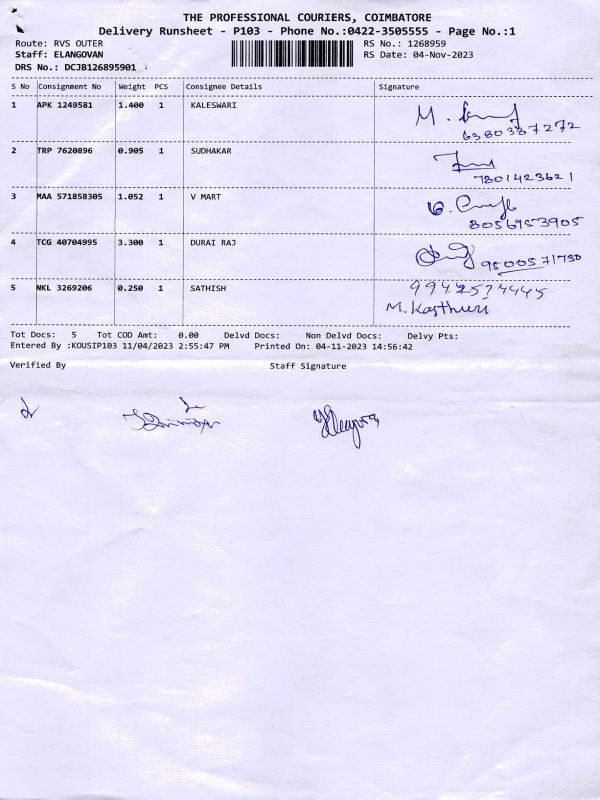 THE PROFESSIONAL COURIERS, COIMBATORE
Delivery Runsheet - P103 - Phone No.:0422-3505555 - Page No.:1
Route: RVS OUTER RS No.: 1268959
Staff: ELANGOVAN RS Date: 04-Nov-2023
DRS No.: DCJB126895901
S No Consignment No Weight PCS Consignee Details Signature
1 APK 1249581 1.400 1 KALESWARI M.
6380387272
2 TRP 7620896 0.905 1 SUDHAKAR
7801423621
3 MAA 571858305 1.052 1 V MART
8056953905
4 TCG 40704995 3.300 1 DURAI RAJ
9500571730
5 NKL 3269206 0.250 1 SATHISH
M. Kasthuri
Tot Docs: 5 Tot COD Amt: 0.00 Delvd Docs: Non Delvd Docs: Delvy Pts:
Entered By :KOUSIP103 11/04/2023 2:55:47 PM Printed On: 04-11-2023 14:56:42
Verified By Staff Signature